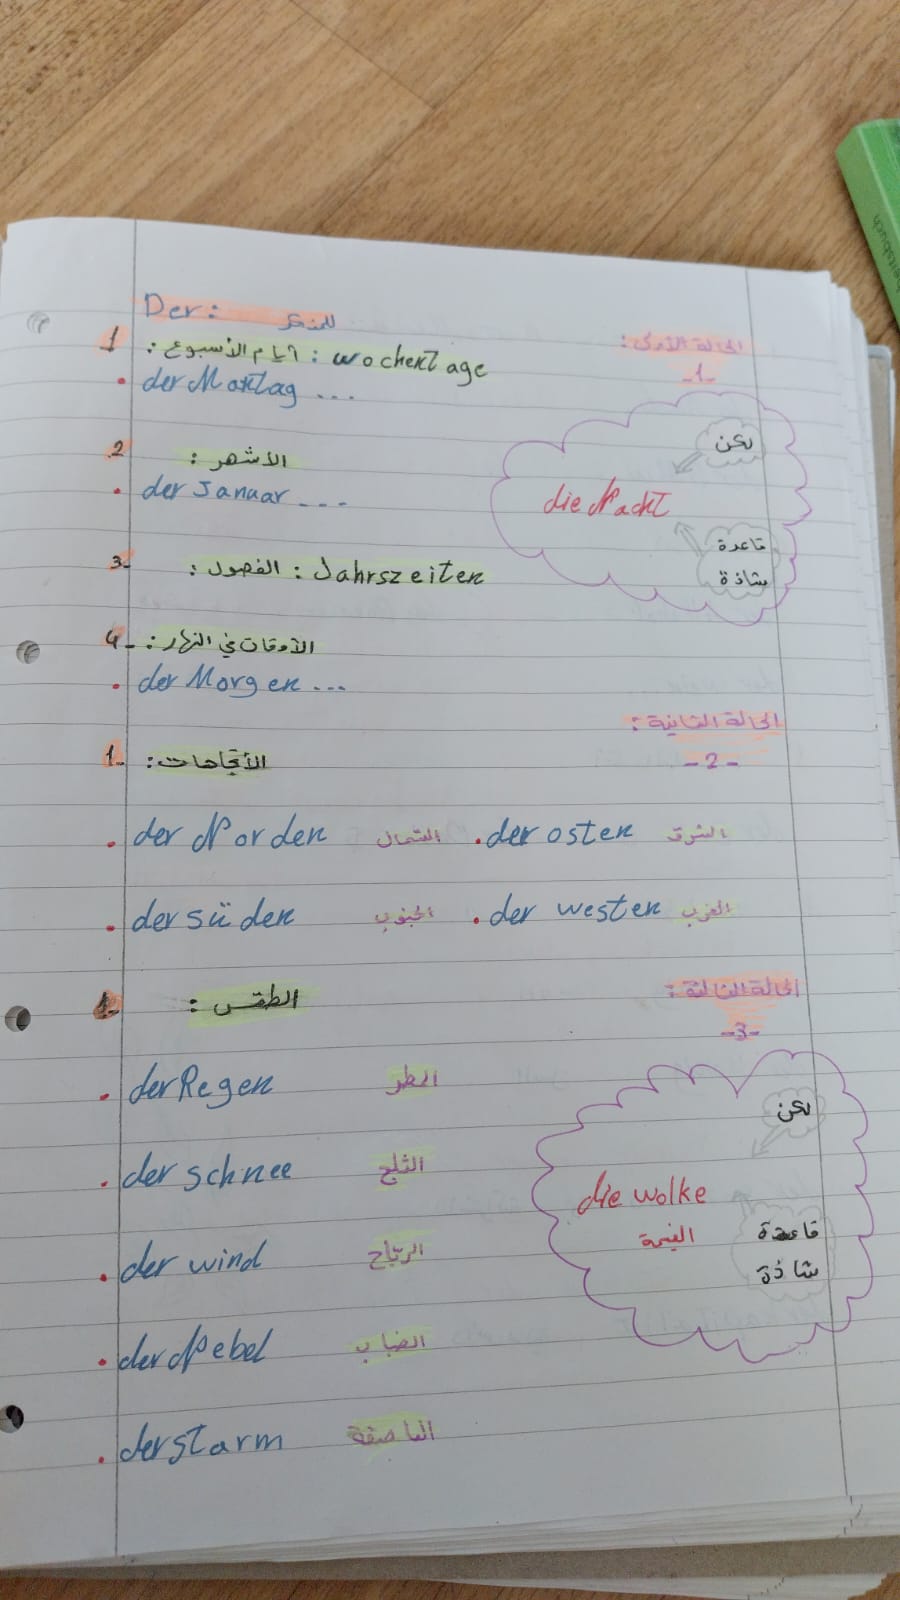 Der: للمذكر
الحالة الأولى:
-1-
1 أيام الأسبوع: wochentage
• der Montag ...
لكن
2 الأشهر:
• der Januar ...
die Nacht
قاعدة
شاذة
3- الفصول: Jahrszeiten
4- الأوقات في النهار:
• der Morgen ...
الحالة الثانية:
-2-
1- الأتجاهات:
• der Norden الشمال • der osten الشرق
• der süden الجنوب • der westen الغرب
الحالة الثالثة:
-3-
1- الطقس:
• der Regen المطر
لكن
• der schnee الثلج
die wolke
الغيمة
قاعدة
شاذة
• der wind الرياح
• der Nebel الضباب
• der starm العاصفة
eitsbuch